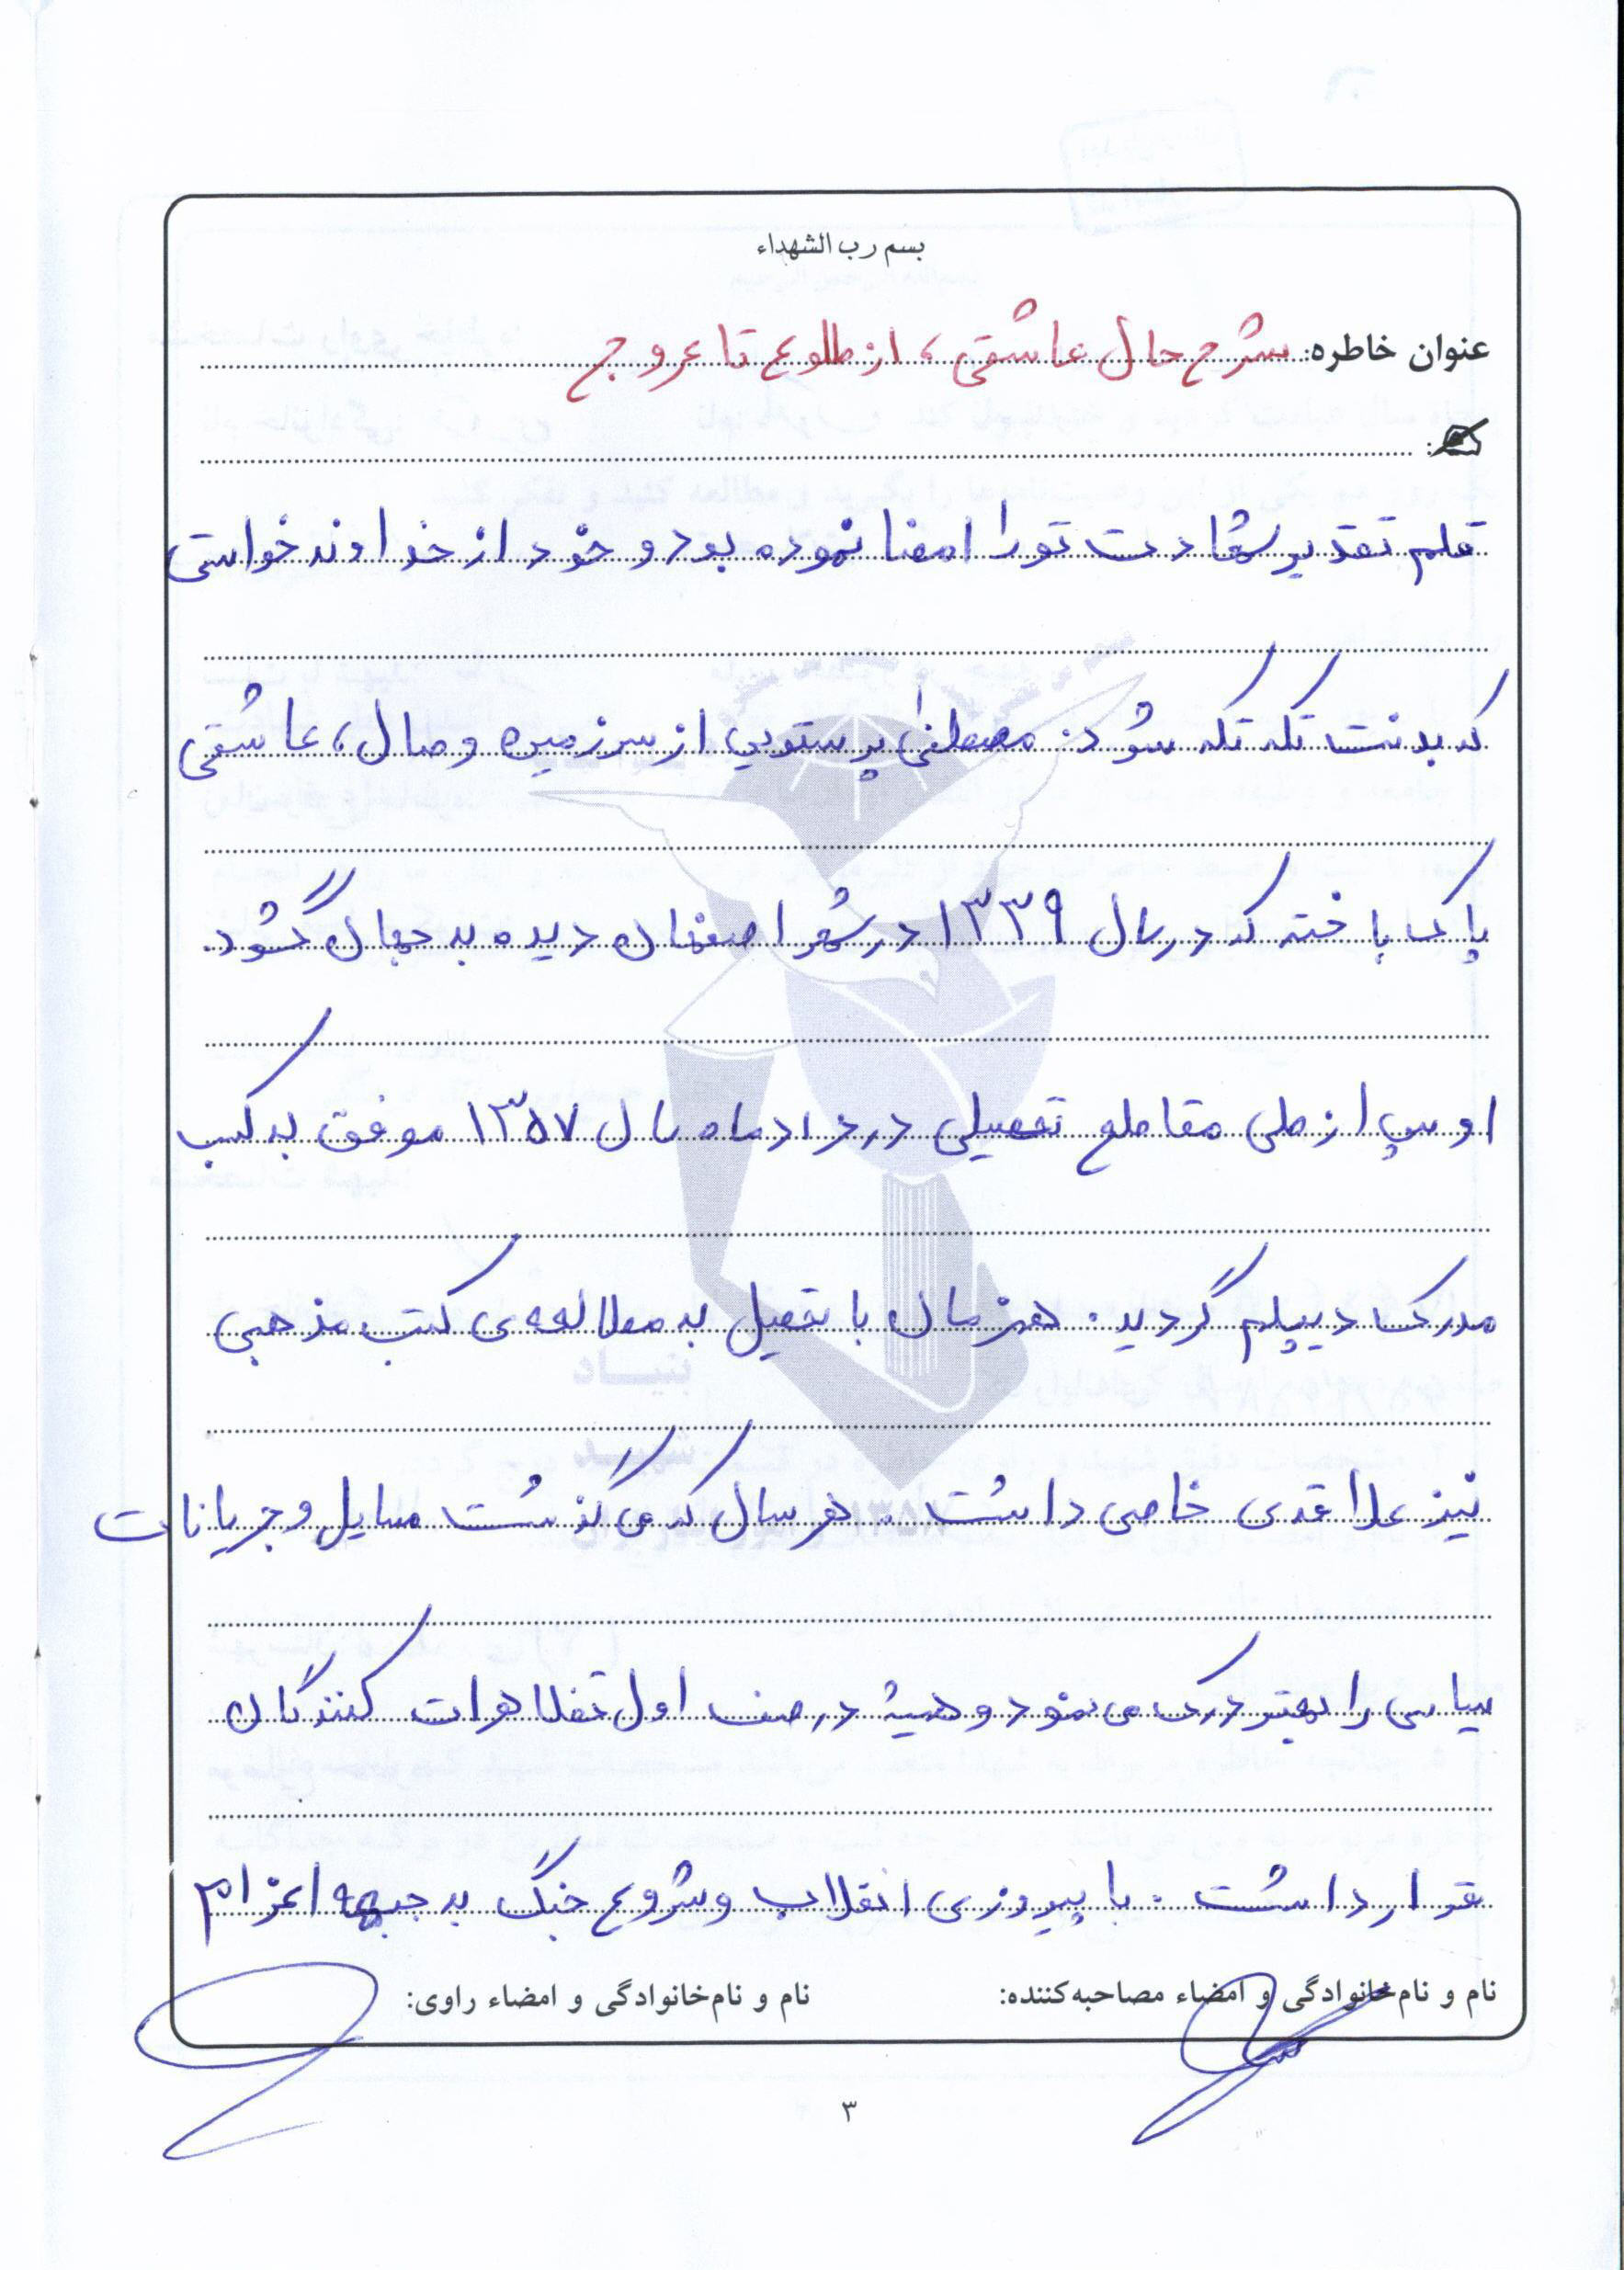 بسم رب الشهداء
عنوان خاطره: شرح حال عاشقی، از طلوع تا عروج
قلم تقدیر شهادت تو را امضا نموده بود و خود از خداوند خواستی
که بدنت تکه تکه شود. مصطفی پرستویی از سرزمین وصال، عاشقی
پاک باخته که در سال ۱۳۳۹ در شهر اصفهان دیده به جهان گشود.
او پس از طی مقاطع تحصیلی در خرداد ماه سال ۱۳۵۷ موفق به کسب
مدرک دیپلم گردید. همزمان با تحصیل به مطالعه‌ی کتب مذهبی
نیز علاقه‌ی خاصی داشت. هر سال که می گذشت مسایل و جریانات
سیاسی را بهتر درک می نمود و همیشه در صف اول تظاهرات کنندگان
قرار داشت. با پیروزی انقلاب و شروع جنگ به جبهه اعزام
نام و نام‌خانوادگی و امضاء مصاحبه‌کننده: نام و نام‌خانوادگی و امضاء راوی:
۳